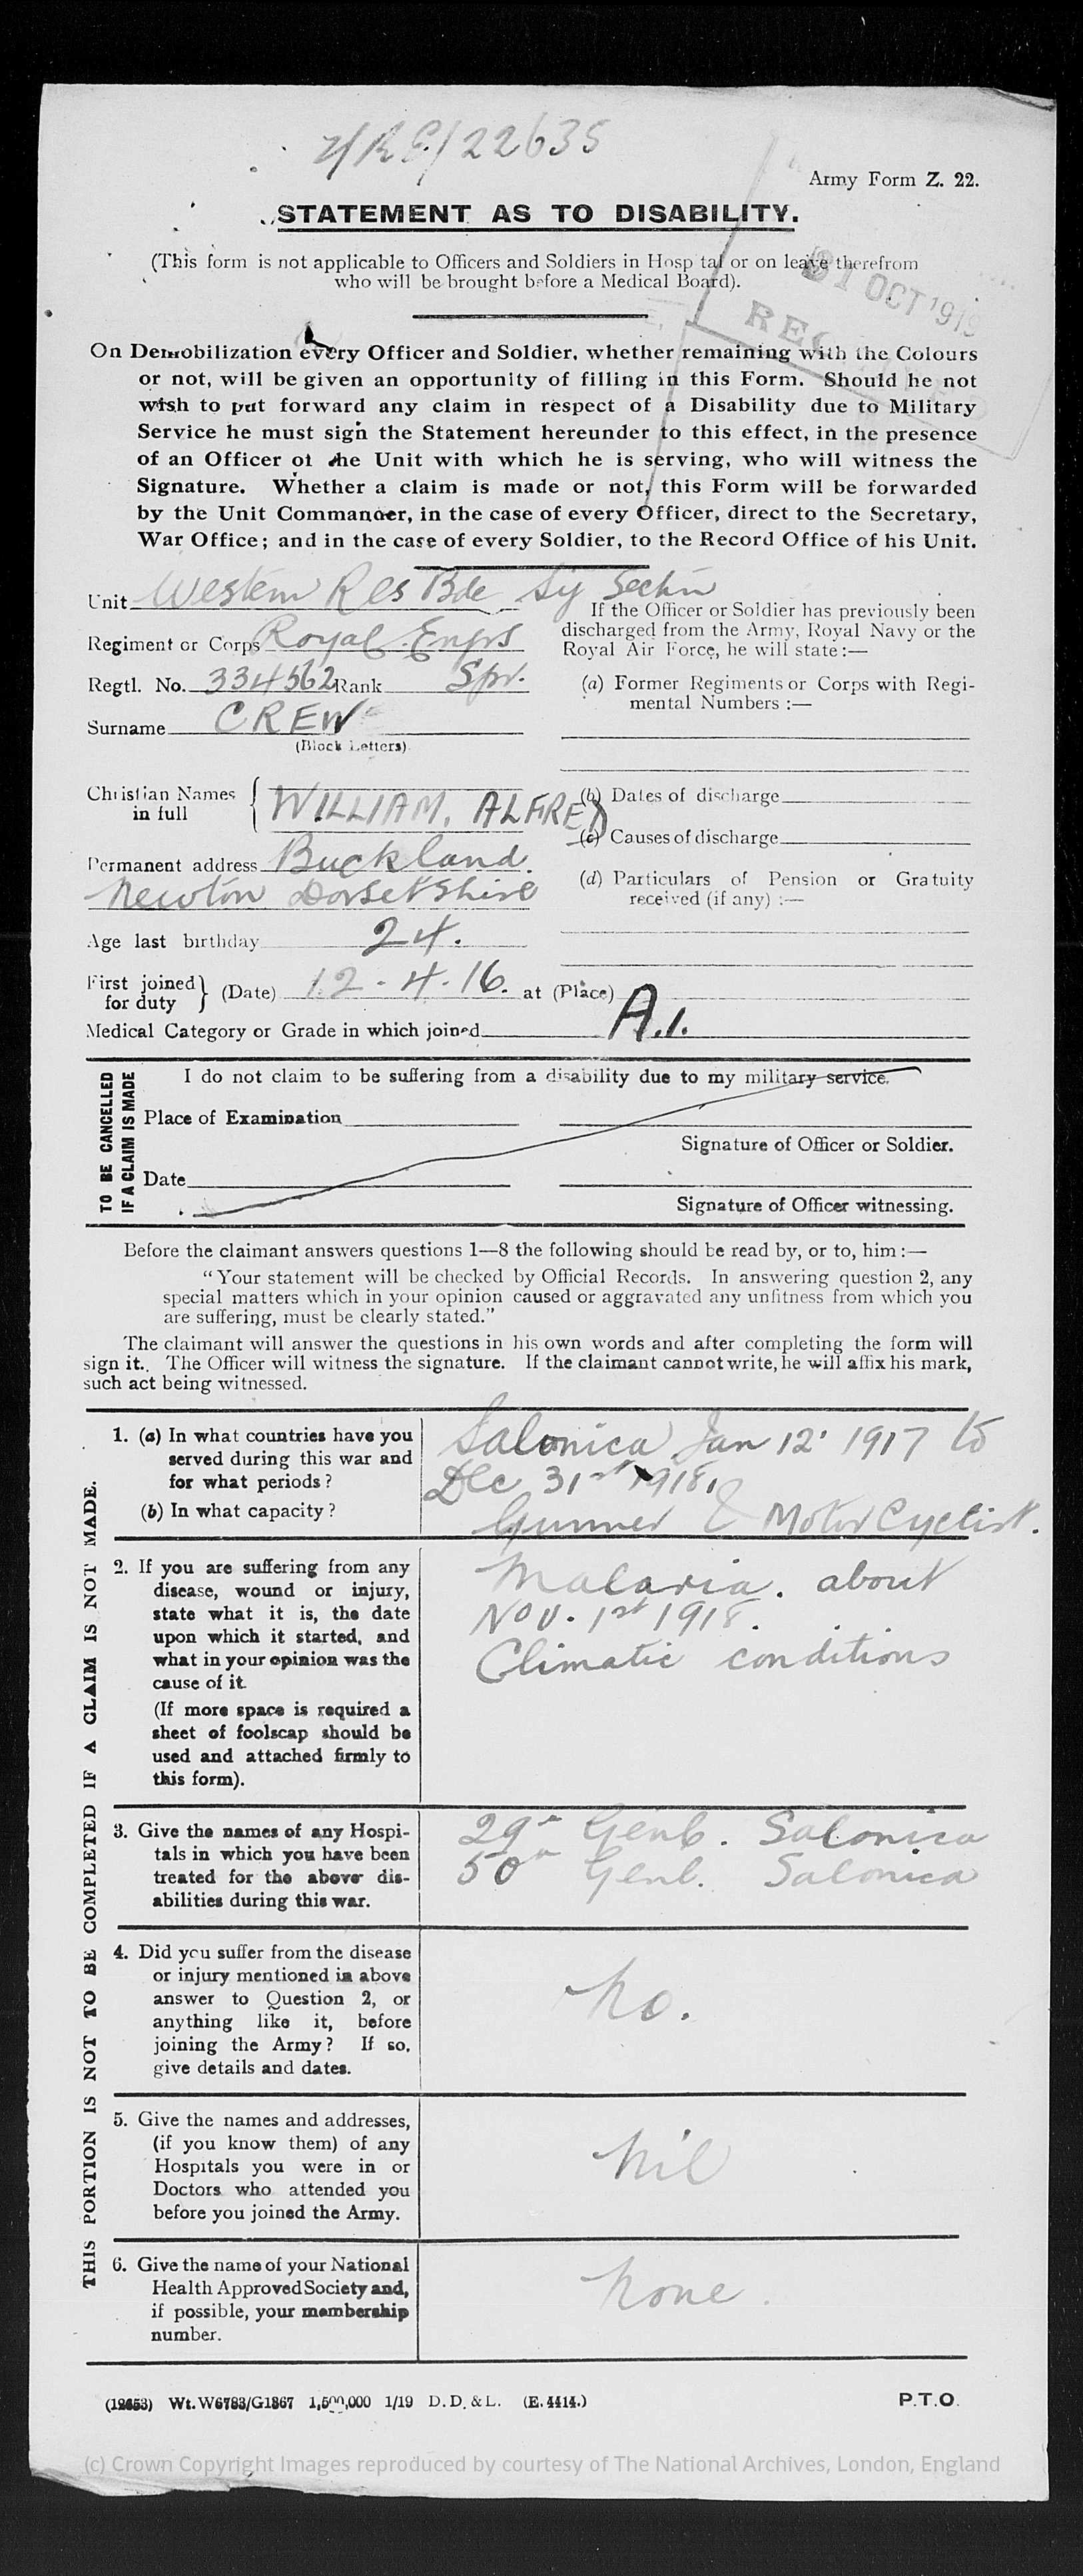 Z/RE/22635
Army Form Z. 22.
STATEMENT AS TO DISABILITY.
(This form is not applicable to Officers and Soldiers in Hosp tal or on leave therefrom
who will be brought before a Medical Board).
31 OCT 1919
On Demobilization every Officer and Soldier, whether remaining with the Colours
or not, will be given an opportunity of filling in this Form. Should he not
wish to put forward any claim in respect of a Disability due to Military
Service he must sign the Statement hereunder to this effect, in the presence
of an Officer of the Unit with which he is serving, who will witness the
Signature. Whether a claim is made or not, this Form will be forwarded
by the Unit Commander, in the case of every Officer, direct to the Secretary,
War Office; and in the case of every Soldier, to the Record Office of his Unit.
Unit Western Res Bde Sig Sectn
Regiment or Corps Royal Engrs
Regtl. No. 334562 Rank Spr.
Surname CREW
(Block Letters)
Christian Names in full WILLIAM, ALFRED
Permanent address Buckland
Newton Dorsetshire
Age last birthday 24.
If the Officer or Soldier has previously been
discharged from the Army, Royal Navy or the
Royal Air Force, he will state:—
(a) Former Regiments or Corps with Regi-
mental Numbers :—
(b) Dates of discharge
(c) Causes of discharge
(d) Particulars of Pension or Gratuity
received (if any) :—
First joined for duty } (Date) 12-4-16. at (Place)
Medical Category or Grade in which joined A.1.
TO BE CANCELLED
IF A CLAIM IS MADE
I do not claim to be suffering from a disability due to my military service.
Place of Examination
Signature of Officer or Soldier.
Date
Signature of Officer witnessing.
Before the claimant answers questions 1—8 the following should be read by, or to, him:—
"Your statement will be checked by Official Records. In answering question 2, any
special matters which in your opinion caused or aggravated any unfitness from which you
are suffering, must be clearly stated."
The claimant will answer the questions in his own words and after completing the form will
sign it. The Officer will witness the signature. If the claimant cannot write, he will affix his mark,
such act being witnessed.
THIS PORTION IS NOT TO BE COMPLETED IF A CLAIM IS NOT MADE.
1. (a) In what countries have you
served during this war and
for what periods?
(b) In what capacity?
Salonica Jan 12' 1917 to
Dec 31st 1918,
Gunner & Motor Cyclist.
2. If you are suffering from any
disease, wound or injury,
state what it is, the date
upon which it started, and
what in your opinion was the
cause of it.
(If more space is required a
sheet of foolscap should be
used and attached firmly to
this form).
Malaria. about
Nov. 1st 1918.
Climatic conditions
3. Give the names of any Hospi-
tals in which you have been
treated for the above dis-
abilities during this war.
29th Genl. Salonica
50th Genl. Salonica
4. Did you suffer from the disease
or injury mentioned in above
answer to Question 2, or
anything like it, before
joining the Army? If so,
give details and dates.
No.
5. Give the names and addresses,
(if you know them) of any
Hospitals you were in or
Doctors who attended you
before you joined the Army.
Nil
6. Give the name of your National
Health Approved Society and,
if possible, your membership
number.
None.
(12653) Wt. W6783/G1867 1,500,000 1/19 D.D. & L. (E. 4414.)
P.T.O.
(c) Crown Copyright Images reproduced by courtesy of The National Archives, London, England